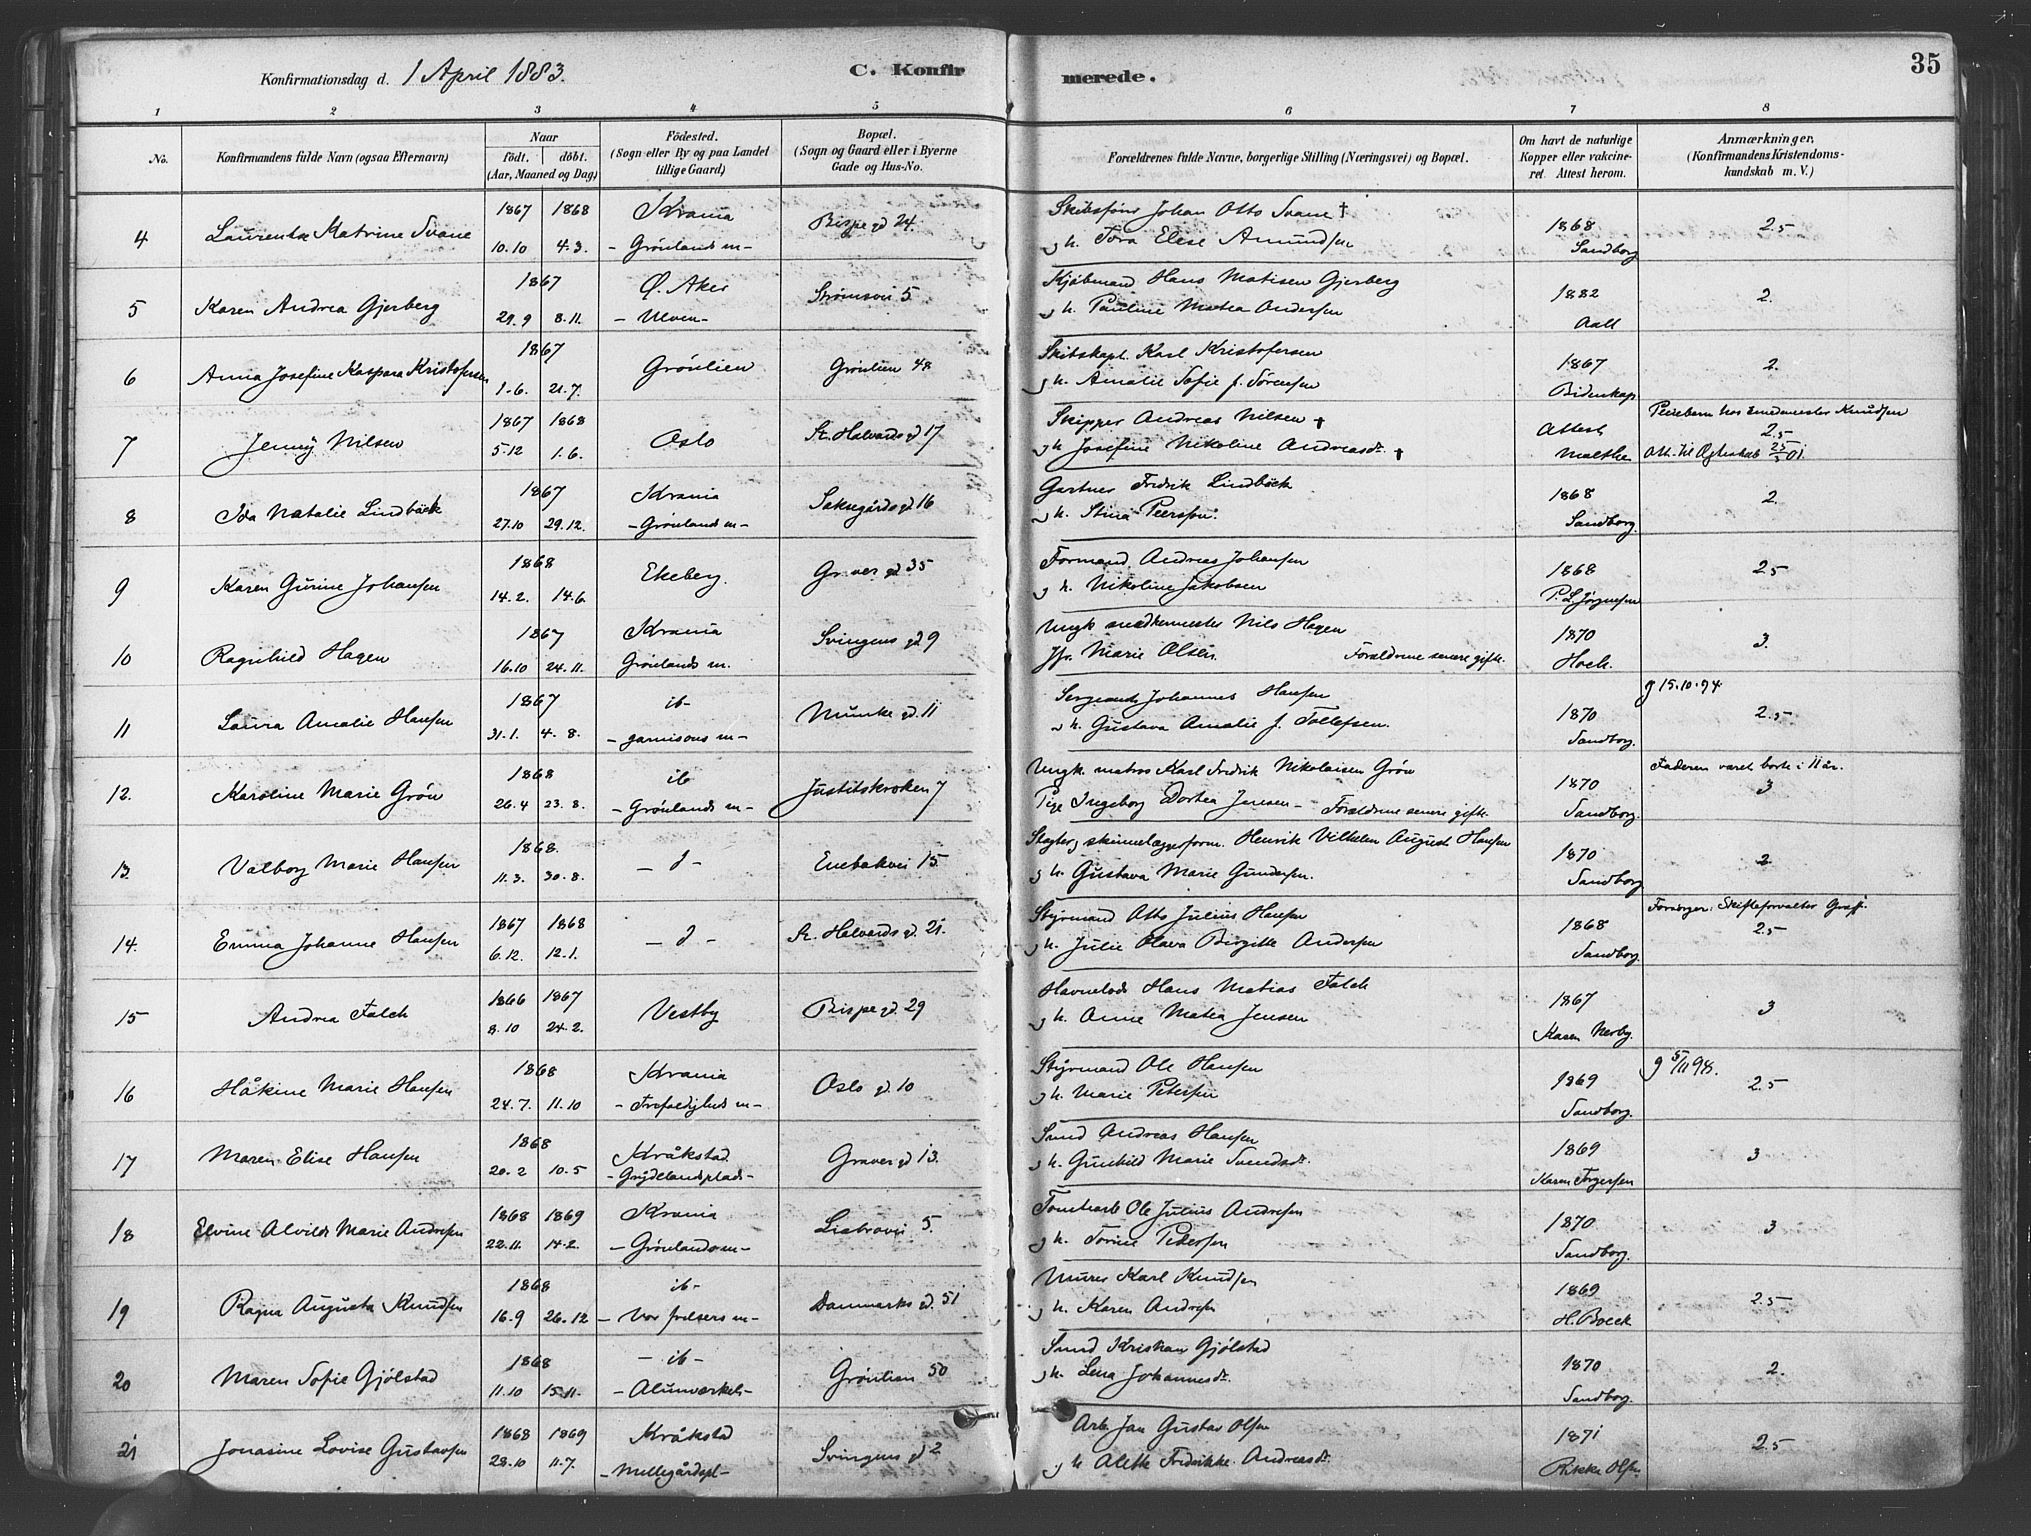 Konfirmationsdag d. 1 April 1883. C. Konfirmerede. 35
1 2 3 4 5 6 7 8
No. Konfirmandens fulde Navn (ogsaa Efternavn) Naar födt. döbt. (Aar, Maaned og Dag) Födested. (Sogn eller By og paa Landet tillige Gaard) Bopæl. (Sogn og Gaard eller i Byerne Gade og Hus-No. Forældrenes fulde Navne, borgerlige Stilling (Næringsvei) og Bopæl. Om havt de naturlige Kopper eller vakcineret. Attest herom. Anmærkninger, (Konfirmandens Kristendomskundskab m. V.)
1867 1868 Krania Skibsfører Johan Otto Svane †
4 Laurentze Katrine Svane Bispe gd 24. 1868 2.5
10.10 4.3. - Grönlands m- g h. Tora Elise Amundsen Sandborg
1867 Ø. Aker Kjøbmand Hans Matisen Gjerberg
5 Karen Andrea Gjerberg Strømsvei 5 1882 2.
29.9 8.11. - Ulven - g h. Pauline Matea Andersen Aall
1867 Skibskapt. Karl Kristofersen
6 Anna Josefine Kaspara Kristofersen Grönlien Grönlien 48 1867 2.
1.6. 21.7. g h. Amalie Sofie f. Sörensen Bidenkap
1867 1868 Skipper Andreas Nilsen † Attest Pleiebarn hos smedmester Knudsen
7 Jenny Nilsen Oslo St. Halvards gd 17 2.5
5.12 1.6. g h Josefine Nikoline Andreasdr. † Malthe Att. til Ægteskab 25/3 01.
1867 Krania Gartner Fredrik Lindbäck
8 Ida Natalie Lindbäck Saksegårds gd 16 1868 2.
27.10 29.12. - Grönlands m - g h. Stina Peersson. Sandborg.
1868 Formand Andreas Johansen
9 Karen Gurine Johansen Ekeberg. Graver gd 35 1868 2.5
14.2. 14.6. g h. Nikoline Jakobsen P. L. Jörgensen
1867 Krania Ungk. snedkermester Nils Hagen
10 Ragnhild Hagen Svingens gd 9 1870 3.
16.10 24.11. Grönlands m. Jfr. Marie Olsen. Forældrene senere gifte. Hoek.
1867 ib- Sergeant Johannes Hansen g 15.10.94
11 Laura Amalie Hansen Munke gd. 11 1870 2.5
31.1. 4.8. - garnisons m - g h. Gustava Amalie f. Tollefsen. Sandborg.
1868 ib Ungk. matros Karl Fredrik Nikolaisen Grön Faderen været borte i 11 år.
12. Karoline Marie Grön Justitskroken 7 1870 3
26.4 23.8. - Grönlands m - Pige Ingeborg Dortea Jensen - Forældrene senere gifte. Sandborg.
1868. Henrik Vilhelm August Hansen
13. Valborg Marie Hansen - d - Enebakvei 15. 1870 2.
11.3. 30.8. g h. Gustava Marie Gundersen. Sandborg
1867 1868 Styrmand Otto Julius Hansen Forsørger: Skifteforvalter Graff.
14. Emma Johanne Hansen - d - St. Halvards gd. 21. 1868 2.5
6.12. 12.1. g h. Julie Olava Birgitte Andersen Sandborg.
1866 1867 Havnelods Hans Matias Falch
15 Andrea Falch Vestby Bispe gd. 29 1867 3
8.10 24.2. g h. Anne Matea Jensen Karen Nerby.
1868 Krania Styrmand Ole Hansen g 5/11 98.
16 Håkine Marie Hansen Oslo gd. 10 1869 2.5
24.7. 11.10 - Trefoldigheds m - g h. Marie Petersen Sandborg.
1868 Kråkstad Smed Andreas Hansen
17 Maren Elise Hansen Graver gd 13. 1869 3
20.2 10.5 - Grydelandsplads - g h. Gunhild Marie Svendsdr. Karen Torgersen
1868 1869 Krania Tomtearb Ole Julius Andresen
18 Elvine Alvilde Marie Andresen Liabrovei 5 1870 3
22.11. 14.2. - Grönlands m - g h. Torine Pedersen Sandborg.
1868 ib- Murer Karl Knudsen
19 Ragna Augusta Knudsen Danmarks gd. 51 1869 2.5
16.9 26.12 - Vor frelsers m - g h. Karen Andresen H. Boeck
1868 - ib - Smed Kristian Gjölstad
20 Maren Sofie Gjölstad Grönlien 50 1870 2.
11.10 15.11. - Alunværket - g h. Lena Johannesdr. Sandborg.
1868 1869 Kråkstad Arb. Jan Gustav Olsen
21 Jonasine Lovise Gustavsen Svingens gd 2. 1871 2.5
28.10 11.7. - Mellegårdspl - g h Alette Fredrikke Andreasdr. Rikke Olsen